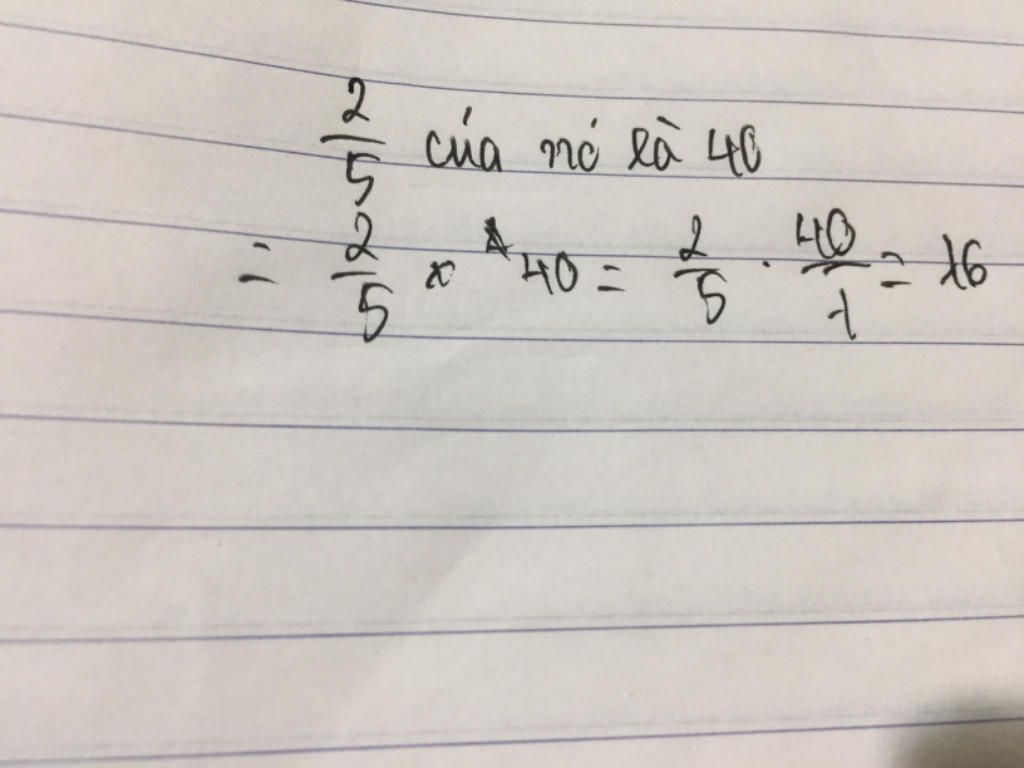 2/5 của nó là 40
= 2/5 x 40 = 2/5 . 40/1 = 16